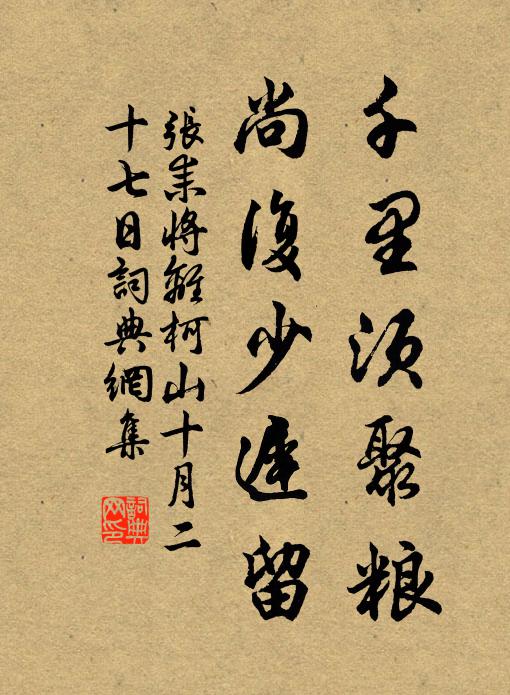 千里须聚粮
尚復少遅留
張耒将離柯山十月二
十七日詞典網集
詞典
网印